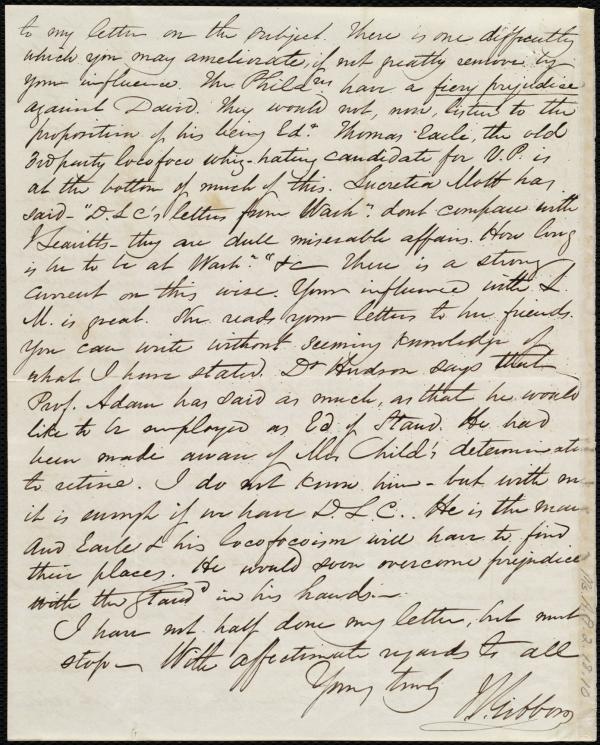 to my letter on the subject. There is one difficulty
which you may ameliorate, if not greatly remove by
your influence. The Philad.ns have a fiery prejudice
against David. They would not, now, listen to the
proposition of his being Ed.r Thomas Earle, the old
3rd party locofoco whig-hating candidate for V.P. is
at the bottom of much of this. Lucretia Mott has
said - "D.L.C's letters from Wash.n dont compare with
J Leavitts - they are dull miserable affairs. How long
is he to be at Wash.n" &c There is a strong
current on this wise. Your influence with L.
M. is great. She reads your letters to her friends.
You can write without seeming knowledge of
what I have stated. Dr Hudson says that
Prof. Adam has said as much, as that he would
like to be employed as Ed. of Stand. He had
been made aware of Mrs Child's determination
to retire. I do not know him - but with me
it is enough if we have D.L.C.. He is the man
And Earle & his locofocoism will have to find
their places. He would soon overcome prejudice
with the Stand.d in his hands. -
I have not half done my letter, but must
stop - With affectionate regards to all
Yours truly
J.S. Gibbons